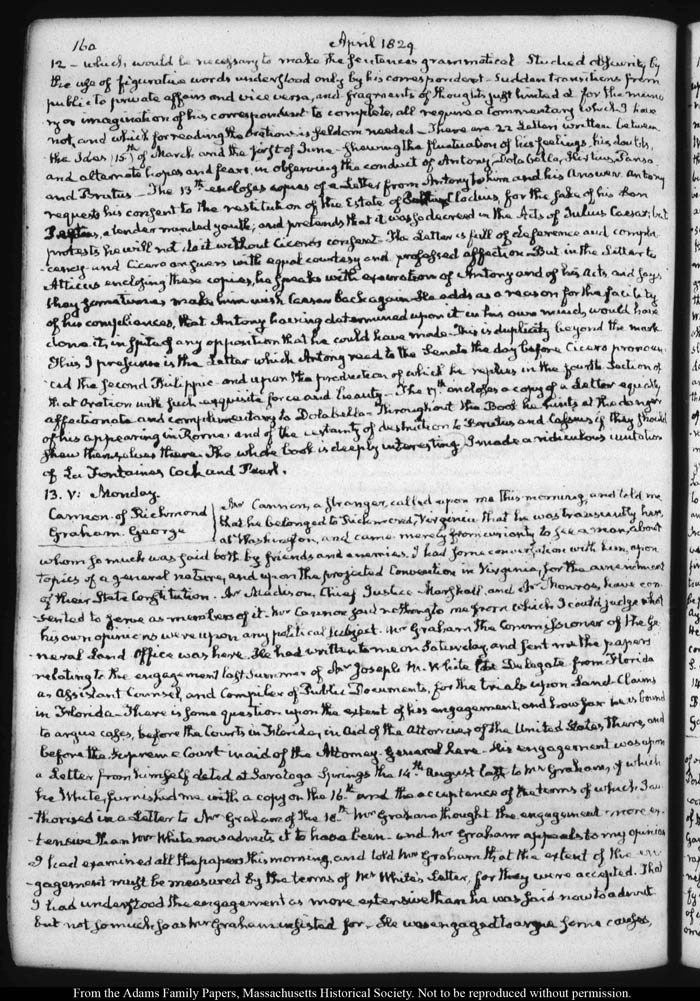 160
April 1829
12 - which would be necessary to make the sentences grammatical - Studied obscurity by
the use of figurative words understood only by his correspondent - Sudden transitions from
public to private affairs and vice versa, and fragments of thoughts just hinted at for the memo-
ry or imagination of his correspondent to complete, all require a commentary which I have
not, and which for reading the Orations is seldom needed - There are 22 Letters written between
the Ides (15)th of March and the first of June - shewing the fluctuation of his feelings, his doubts,
and alternate hopes and fears, in observing the conduct of Antony, Dolabella, Hirtius, Pansa
and Brutus - The 13th encloses copies of a Letter from Antony to him and his Answer. Antony
requests his consent to the restitution of the Estate of Clodius, for the sake of his Son
a tender minded youth, and pretends that it was so decreed in the Acts of Julius Caesar; but
protests he will not do it without Cicero's consent. The Letter is full of deference and compla-
cency - and Cicero answers with equal courtesy and professed affection - But in the Letter to
Atticus enclosing these copies, he speaks with execration of Antony and of his acts and says
they sometimes make him wish Caesar back again. He adds as a reason for the facility
of his compliances, that Antony having determined upon it in his own mind, would have
done it, in spite of any opposition that he could have made. This is duplicity beyond the mark
This I presume is the Letter which Antony read to the Senate the day before Cicero pronoun-
ced the second Philippic - and upon the production of which he replies in the fourth Section of
that Oration with such exquisite force and beauty - The 17th encloses a copy of a Letter equally
affectionate and complimentary to Dolabella - Throughout the Book he hints at the danger
of his appearing in Rome; and of the certainty of destruction to Brutus and Cassius if they should
shew themselves there. The whole book is deeply interesting. I made a ridiculous imitation
of La Fontaines Cock and Pearl.
13. V: Monday.
Cannon of Richmond
Graham. George
Mr Cannon, a stranger, called upon me this morning, and told me
that he belonged to Richmond, Virginia that he was transiently here,
at Washington, and came merely from curiosity to see a man, about
whom so much was said both by friends and enemies. I had some conversation with him, upon
topics of a general nature, and upon the projected Convention in Virginia, for the amendment
of their State Constitution. Mr Madison, Chief Justice Marshall, and Mr Monroe, have con-
sented to serve as members of it. Mr Cannon said nothing to me from which I could judge what
his own opinions were upon any political subject. Mr Graham the Commissioner of the Ge-
neral Land Office was here. He had written to me on Saturday, and sent me the papers
relating to the engagement last Summer of Mr Joseph M. White the Delegate from Florida
as Assistant Counsel, and Compiler of Public Documents, for the trials upon Land Claims
in Florida. There is some question upon the extent of his engagement, and how far he is bound
to argue cases, before the Courts in Florida, in aid of the Attorney of the United States, there, and
before the Supreme Court in aid of the Attorney General here - His engagement was upon
a Letter from himself dated at Saratoga Springs the 14th August last to Mr Graham, of which
he White, furnished me with a copy on the 16th and the acceptance of the terms of which I au-
thorised in a Letter to Mr Graham of the 18th Mr Graham thought the engagement more ex-
tensive than Mr White now admits it to have been - and Mr Graham appeals to my opinion
I had examined all the papers this morning, and told Mr Graham that the extent of the en-
gagement must be measured by the terms of Mr White's Letter, for they were accepted. That
I had understood the engagement as more extensive than he was said now to admit
but not so much so as Mr Graham insisted for - He was engaged to argue some causes,
From the Adams Family Papers, Massachusetts Historical Society. Not to be reproduced without permission.